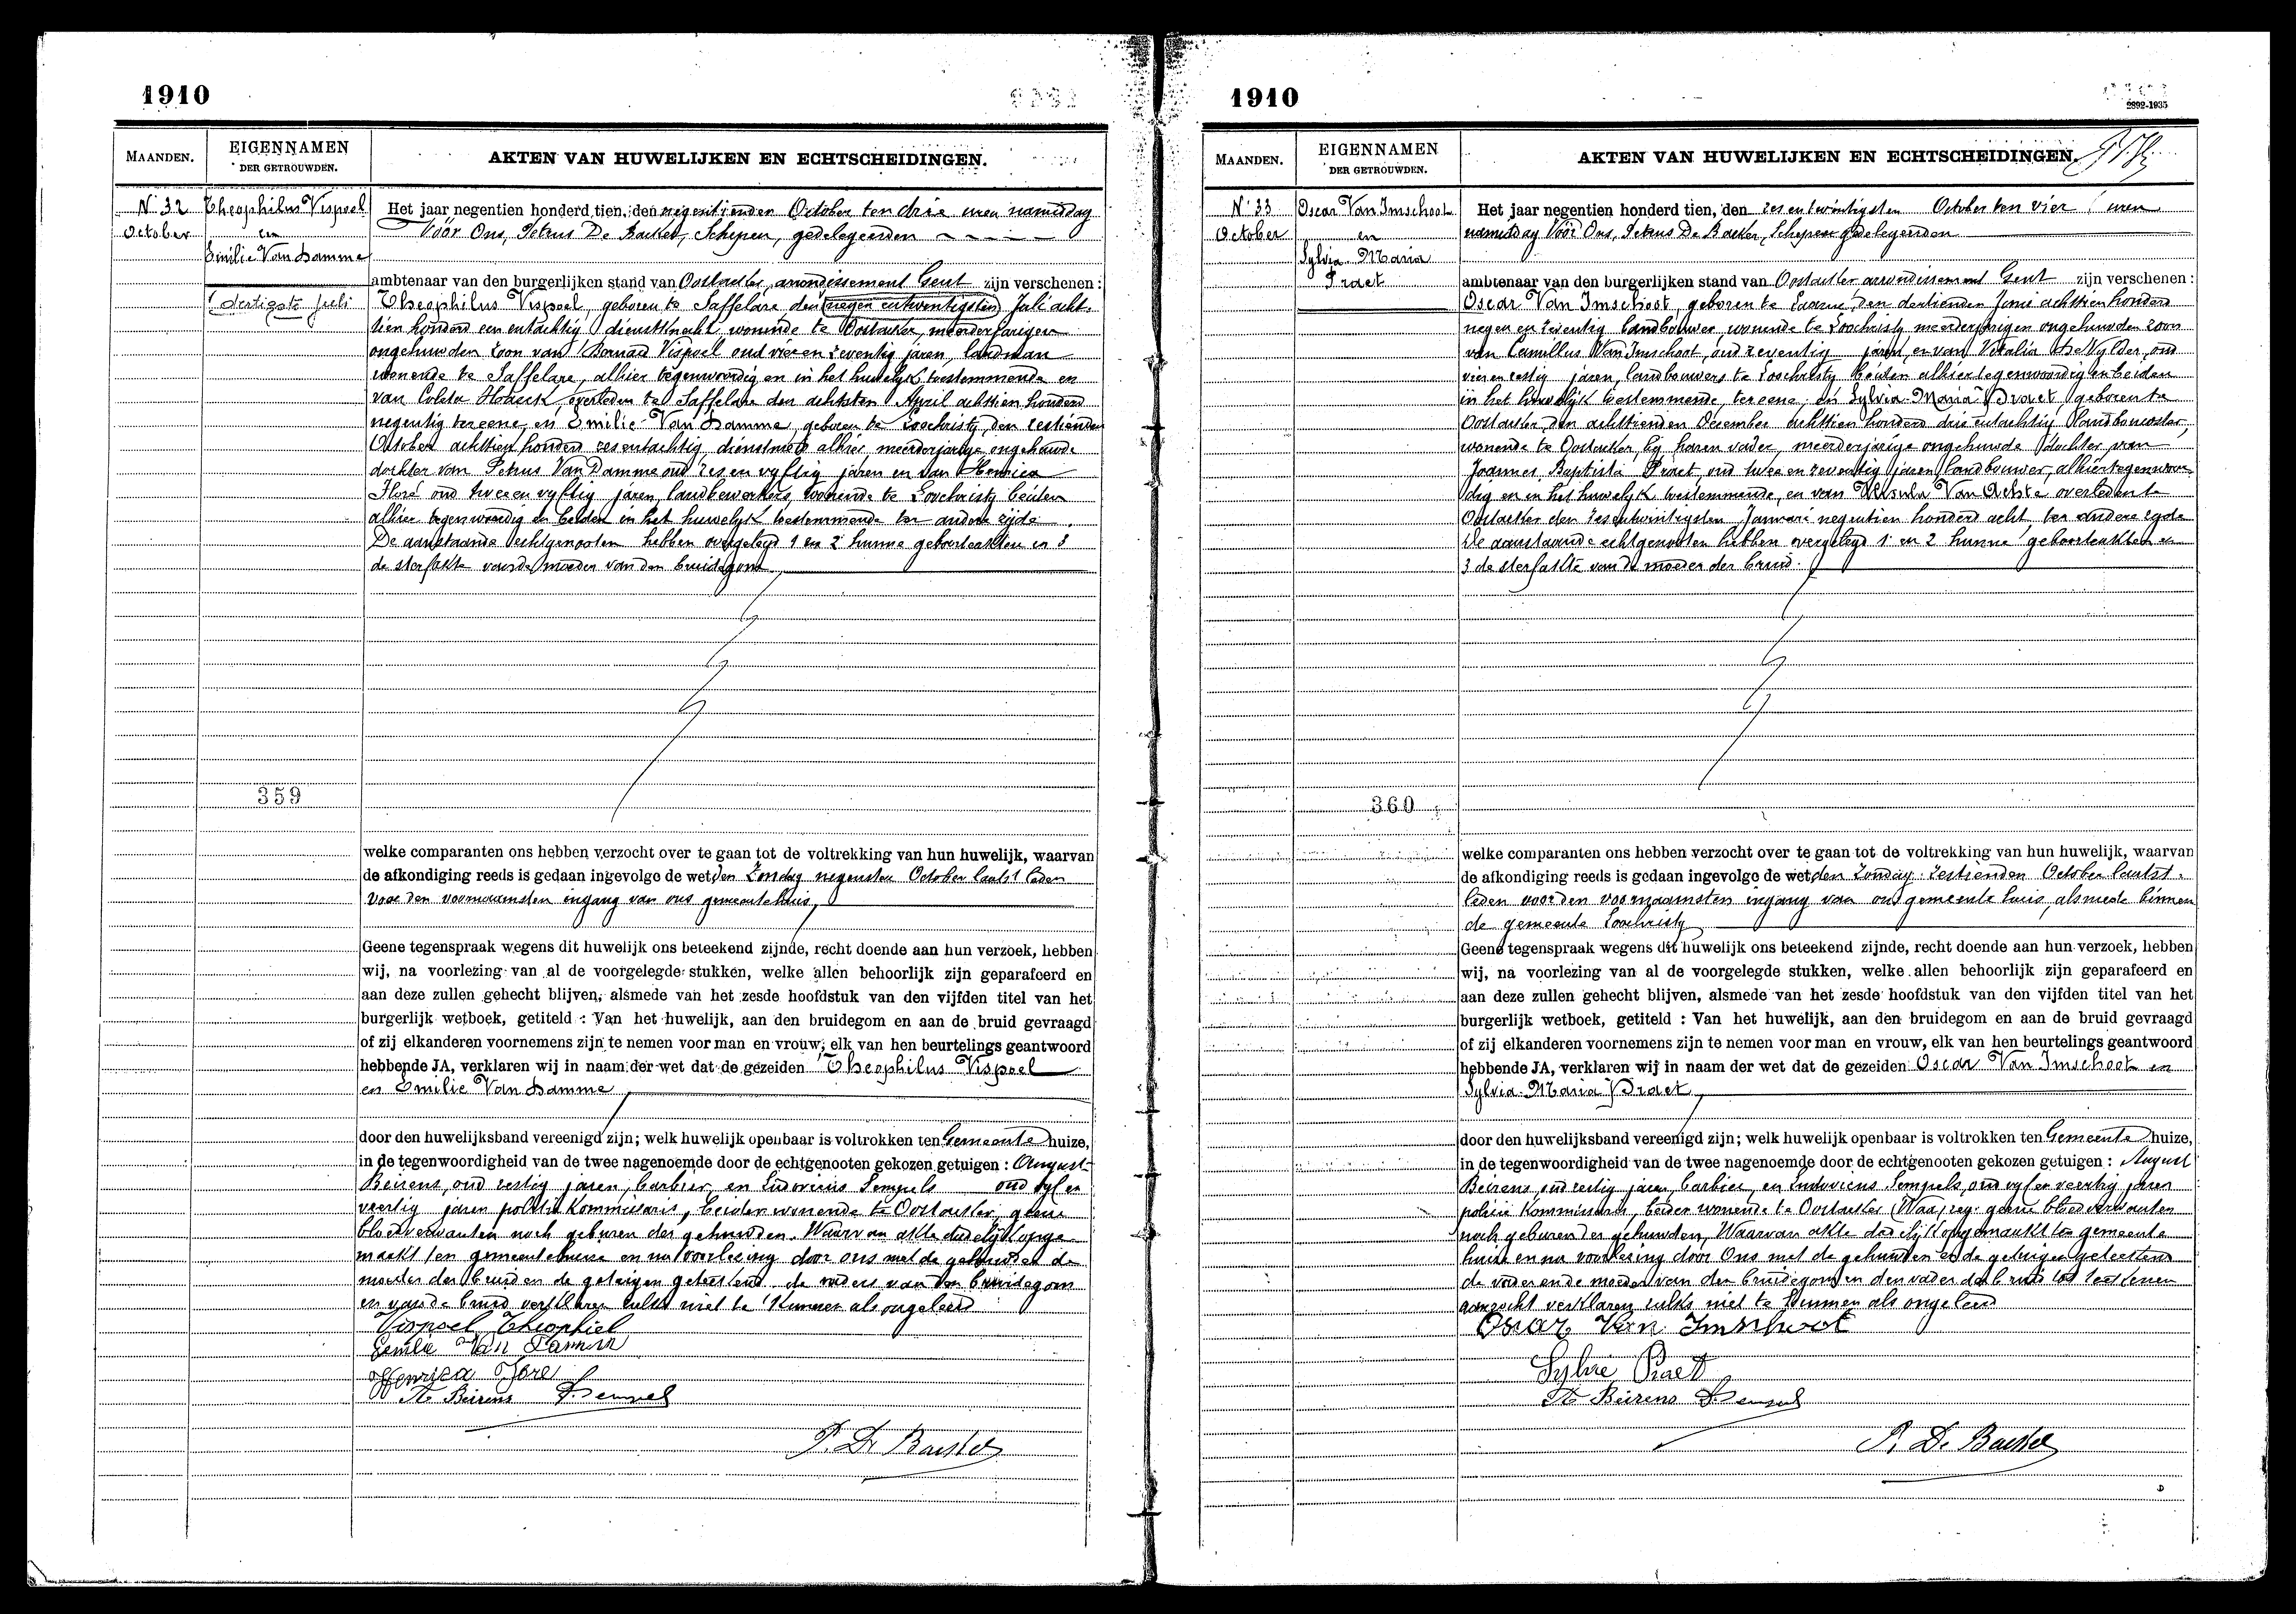 1910
MAANDEN.
EIGENNAMEN
DER GETROUWDEN.
AKTEN VAN HUWELIJKEN EN ECHTSCHEIDINGEN.
N. 32
October
Theophilus Vispoel
en
Emilie Van Damme
dertigste Juli
Het jaar negentien honderd tien, den negentienden October ten drie uren namiddag
Vóór Ons, Petrus De Backer, Schepen, gedelegeerden
ambtenaar van den burgerlijken stand van Oostacker, arrondissement Gent zijn verschenen :
Theophilus Vispoel, geboren te Saffelare den negen entwentigsten Juli acht-
tien honderd een entachtig dienstknecht wonende te Oostacker, meerderjarigen
ongehuwden zoon van Bernard Vispoel oud vier en zeventig jaren, landman
wonende te Saffelare, alhier tegenwoordig en in het huwelijk toestemmende en
van Coleta Hoheck, overleden te Saffelare den achtsten April achttien honderd
negentig tereene, en Emilie Van Damme, geboren te Loochristy, den zestienden
October achttien honderd zesentachtig, dienstmeid alhier meerderjarige ongehuwde
dochter van Petrus Van Damme oud zes en vyftig jaren en van Henrica
Floré oud twee en vyftig jaren, landbewerkers, wonende te Loochristy beiden
alhier tegenwoordig en beiden in het huwelyk toestemmende ter andere zijde
De aanstaande echtgenooten hebben overgelegd 1 en 2 hunne geboorteakten en 3
de sterfakte van de moeder van den bruidegom
359
welke comparanten ons hebben verzocht over te gaan tot de voltrekking van hun huwelijk, waarvan
de afkondiging reeds is gedaan ingevolge de wet, den Zondag negensten October laatst leden
voor den voornaamsten ingang van ons gemeentehuis,
Geene tegenspraak wegens dit huwelijk ons beteekend zijnde, recht doende aan hun verzoek, hebben
wij, na voorlezing van al de voorgelegde stukken, welke allen behoorlijk zijn geparafeerd en
aan deze zullen gehecht blijven, alsmede van het zesde hoofdstuk van den vijfden titel van het
burgerlijk wetboek, getiteld : Van het huwelijk, aan den bruidegom en aan de bruid gevraagd
of zij elkanderen voornemens zijn te nemen voor man en vrouw, elk van hen beurtelings geantwoord
hebbende JA, verklaren wij in naam der wet dat de gezeiden Theophilus Vispoel
en Emilie Van Damme
door den huwelijksband vereenigd zijn; welk huwelijk openbaar is voltrokken ten Gemeente huize,
in de tegenwoordigheid van de twee nagenoemde door de echtgenooten gekozen getuigen : August
Beirens, oud zestig jaren, barbier, en Ludovicus Sempels oud vyf en
veertig jaren politie Kommissaris, beiden wonende te Oostacker, geene
bloedverwanten noch geburen der gehuwden. Waarvan akte dadelijk opge-
maakt ten gemeentehuize en na voorlezing door ons met de gehuwden de
moeder der bruid en de getuigen geteekend de vaders van den bruidegom
en van de bruid verklaren zulks niet te kunnen als ongeleerd
Vispoel Theophiel
Emilie Van Damme
Henrica Floré
A. Beirens Sempels
P. De Backer
1910
2892-1935
MAANDEN.
EIGENNAMEN
DER GETROUWDEN.
AKTEN VAN HUWELIJKEN EN ECHTSCHEIDINGEN.
N. 33
October
Oscar Van Imschoot
en
Sylvia Maria
Praet
Het jaar negentien honderd tien, den zes entwintigsten October ten vier uren
namiddag Vóór Ons, Petrus De Backer, Schepen gedelegeerden
ambtenaar van den burgerlijken stand van Oostacker arrondissement Gent zijn verschenen :
Oscar Van Imschoot, geboren te Laarne, den dertienden Juni achttien honderd
negen en zeventig landbouwer, wonende te Loochristy meerderjarigen ongehuwden zoon
van Camillus Van Imschoot, oud zeventig jaren, en van Vitalia De Vylder, oud
vier en zestig jaren, landbouwers te Loochristy beiden alhier tegenwoordig en beiden
in het huwelijk toestemmende tereene; en Sylvia-Maria Praet geboren te
Oostacker, den achttienden December achttien honderd drie entachtig landbouwster,
wonende te Oostacker by haren vader, meerderjarige ongehuwde dochter van
Joannes Baptista Praet, oud twee en zeventig jaren landbouwer, alhier tegenwoor-
dig en in het huwelyk toestemmende, en van Ursula Van Achte overleden te
Oostacker den zesentwintigsten Januari negentien honderd acht ter andere zyde
De aanstaande echtgenooten hebben overgelegd 1 en 2 hunne geboorteakten en
3 de sterfakte van de moeder der bruid.
360
welke comparanten ons hebben verzocht over te gaan tot de voltrekking van hun huwelijk, waarvan
de afkondiging reeds is gedaan ingevolge de wet, den Zondag zestienden October laatst-
leden voor den voornaamsten ingang van ons gemeente huis, alsmede binnen
de gemeente Loochristy
Geene tegenspraak wegens dit huwelijk ons beteekend zijnde, recht doende aan hun verzoek, hebben
wij, na voorlezing van al de voorgelegde stukken, welke allen behoorlijk zijn geparafeerd en
aan deze zullen gehecht blijven, alsmede van het zesde hoofdstuk van den vijfden titel van het
burgerlijk wetboek, getiteld : Van het huwelijk, aan den bruidegom en aan de bruid gevraagd
of zij elkanderen voornemens zijn te nemen voor man en vrouw, elk van hen beurtelings geantwoord
hebbende JA, verklaren wij in naam der wet dat de gezeiden Oscar Van Imschoot en
Sylvia-Maria Praet
door den huwelijksband vereenigd zijn; welk huwelijk openbaar is voltrokken ten Gemeente huize,
in de tegenwoordigheid van de twee nagenoemde door de echtgenooten gekozen getuigen : August
Beirens, oud zestig jaren, barbier, en Ludovicus Sempels, oud vyf en veertig jaren
politie Kommissaris, beiden wonende te Oostacker geene bloedverwanten
noch geburen der gehuwden, Waarvan akte dadelijk opgemaakt ten gemeente
huize en na voorlezing door Ons met de gehuwden en de getuigen geteekend
de vader en de moeder van den bruidegom en den vader der bruid tot teekenen
aanzocht verklaren zulks niet te kunnen als ongeleerd
Oscar Van Imschoot
Sylvie Praet
A. Beirens Sempels
P. De Backer